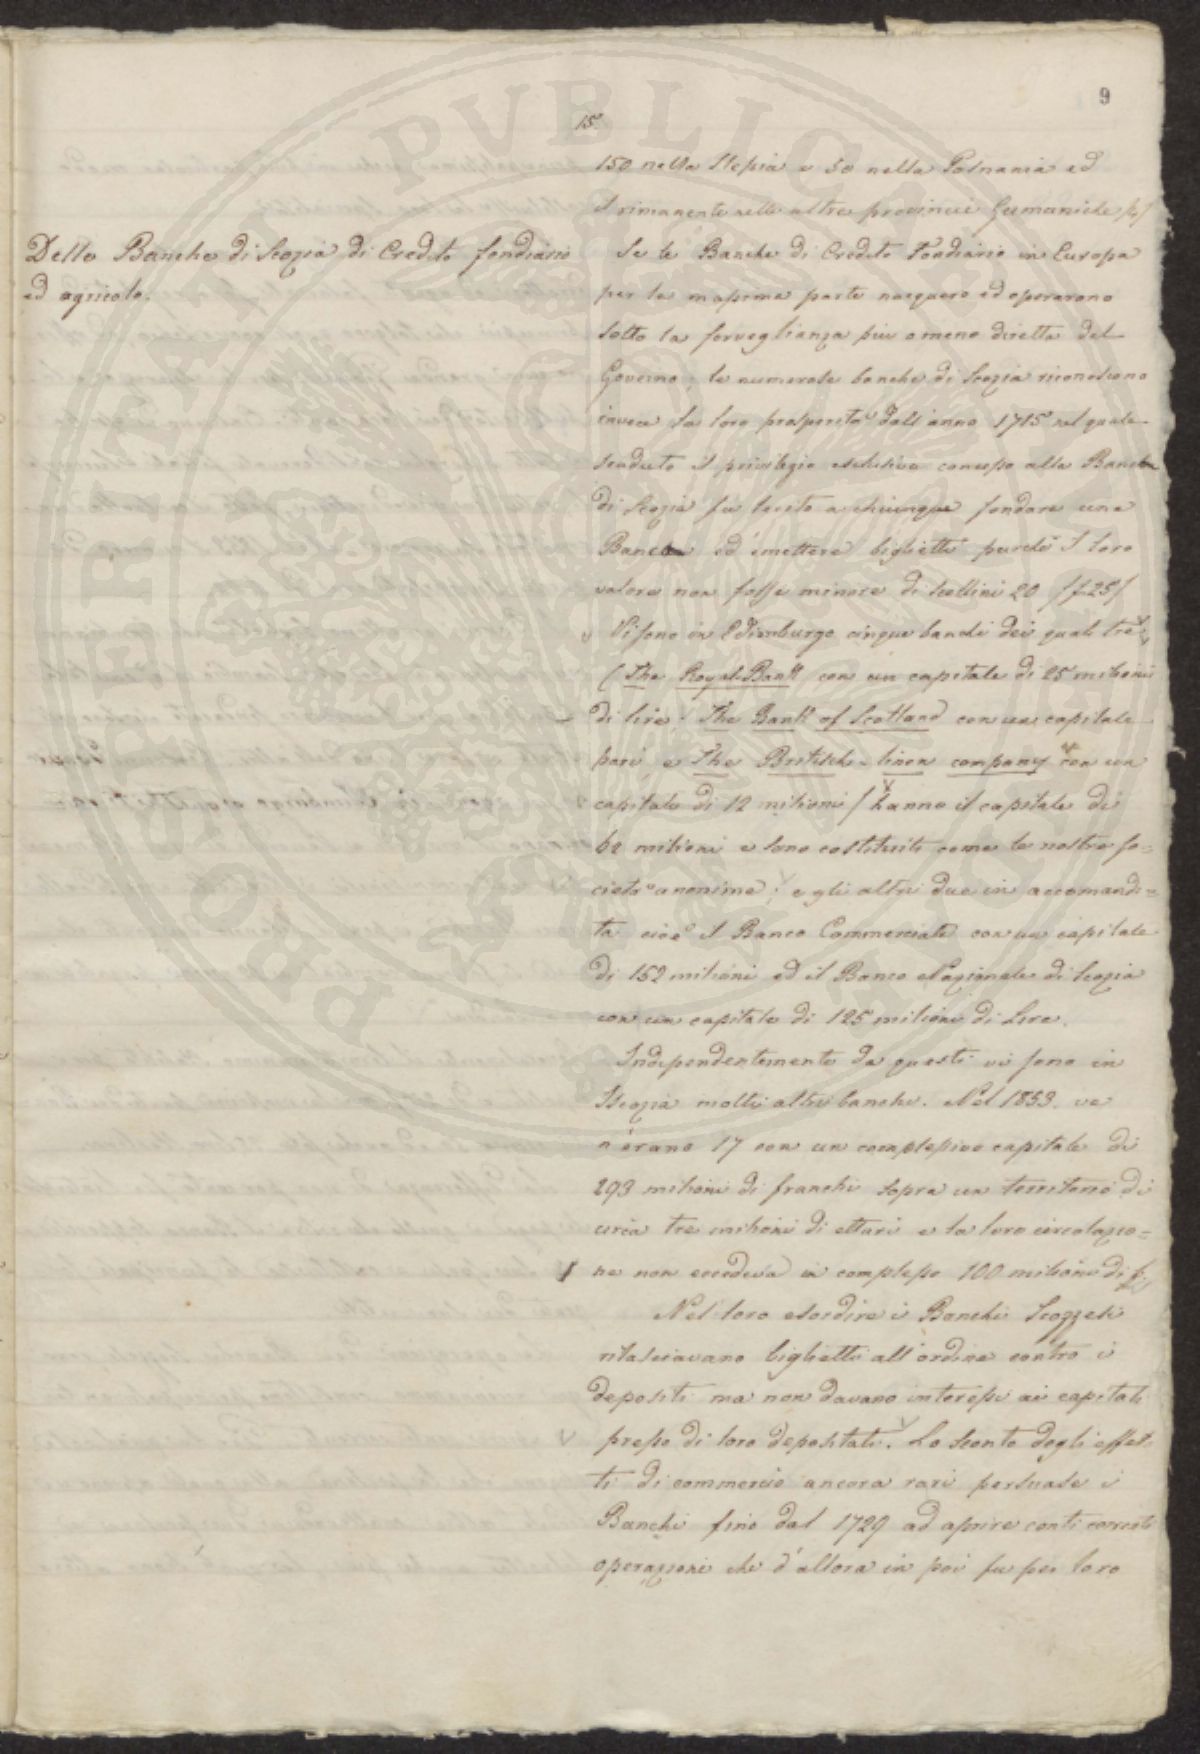 9
15.
150 nella Slesia e 50 nella Posnania ed
il rimanente nelle altre provincie Germaniche
Delle Banche di Scozia di Credito fondiario
ed agricolo.
Se le Banche di Credito Fondiario in Europa
per la massima parte nacquero ed operarono
sotto la sorveglianza più o meno diretta del
Governo, le numerose banche di Scozia riconoscono
invece la loro prosperità dall'anno 1715 nel quale
scaduto il privilegio esclusivo concesso alla Banca
di Scozia fu lecito a chiunque fondare una
Banca ed emettere biglietti purchè il loro
valore non fosse minore di scellini 20 /f. 25/
Vi sono in Edimburgo cinque banchi dei quali tre
(The Royal Bank con un capitale di 25 milioni
di lire, The Bank of Scotland con un capitale
pari, e The Britisch-linen company con un
capitale di 12 milioni / hanno il capitale di
62 milioni e sono costituiti come le nostre so=
cietà anonime; e gli altri due in accomandi=
ta cioè il Banco Commerciale con un capitale
di 152 milioni ed il Banco Nazionale di Scozia
con un capitale di 125 milioni di Lire.
Independentemente da questi vi sono in
Iscozia molti altri banchi. Nel 1853. ve
n'erano 17 con un complessivo capitale di
293 milioni di franchi sopra un territorio di
circa tre milioni di ettari e la loro circolazio=
ne non eccedeva in complesso 100 milioni di
Nel loro esordire i Banchi Scozzesi
rilasciavano biglietti all'ordine contro i
depositi ma non davano interessi ai capitali
presso di loro depositati. Lo sconto degli effet=
ti di commercio ancora rari persuase i
Banchi fino dal 1729 ad aprire conti correnti
operazioni che d'allora in poi fu per loro
PROSPERITATI PVBLICAE